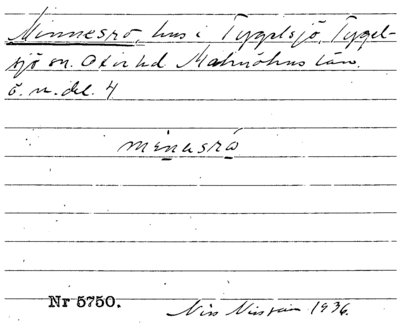 Minnesro, hus i Tygelsjö, Tygel-
sjö sn. Oxie hd Malmöhus län.
ö. n. del. 4
minɑsrọ
Nr 5750.
Nils Nilsson 1936.